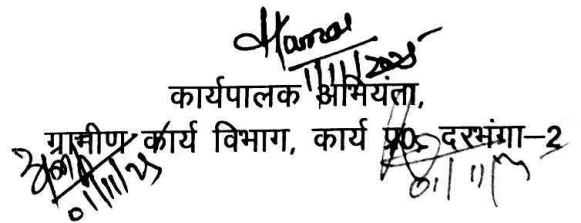 1/11/2025
कार्यपालक अभियंता,
ग्रामीण कार्य विभाग, कार्य प्र0, दरभंगा–2
01/11/25
01/11/